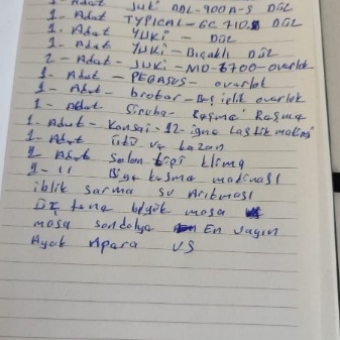 1- Adet Juki DDL-900A-S Düz
1. Adet TYPICAL-GC 710. Düz
1. Adet YUKi - Düz
1. Adet YUKi- Bıçaklı Düz
2- Adet - JUKi - MO-6700-overlok
1- Adet - PEGASUS- overlok
1- Adet - brotar- Beş iplik overlok
1- Adet Siruba- Reşme Reşme
1. Adet - Kansai-12-igne Lastik makinesi
1 Adet ütü ve kazan
1 Adet salon tipi klima
1- 11 Biye kesme makinası
iblik sarma su Arıtması
üç tane büyük masa
masa sandalye En yayın
Ayak Apara VS